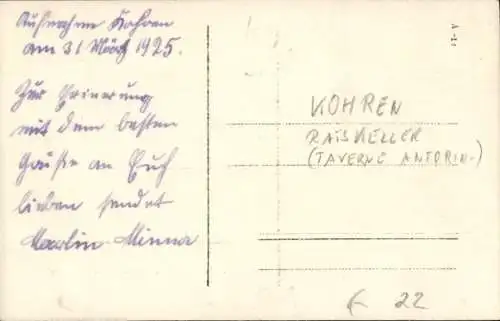 Aufnahme Kohren
am 31 März 1925.
Zur Erinerung
mit dem besten
Grüße an Euch
lieben sendet
Martin-Minna
KOHREN
RAISKELLER
(TAVERNE ANTORIN.)
22